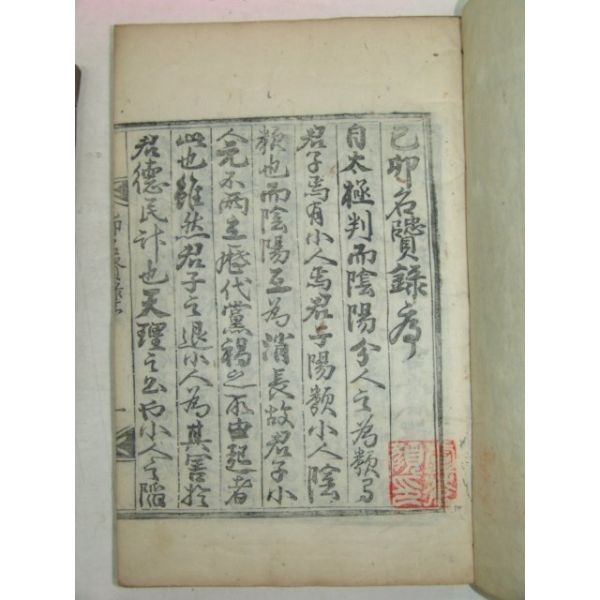 己卯名贒錄序
自太極判而陰陽分人之為類
君子焉有小人焉君子陽類小人陰
類也而陰陽互為消長故君子小
人元不兩立歷代黨禍之所由起者
此也雖然君子之退小人為其害於
君德民計也天理之公也小人之陷